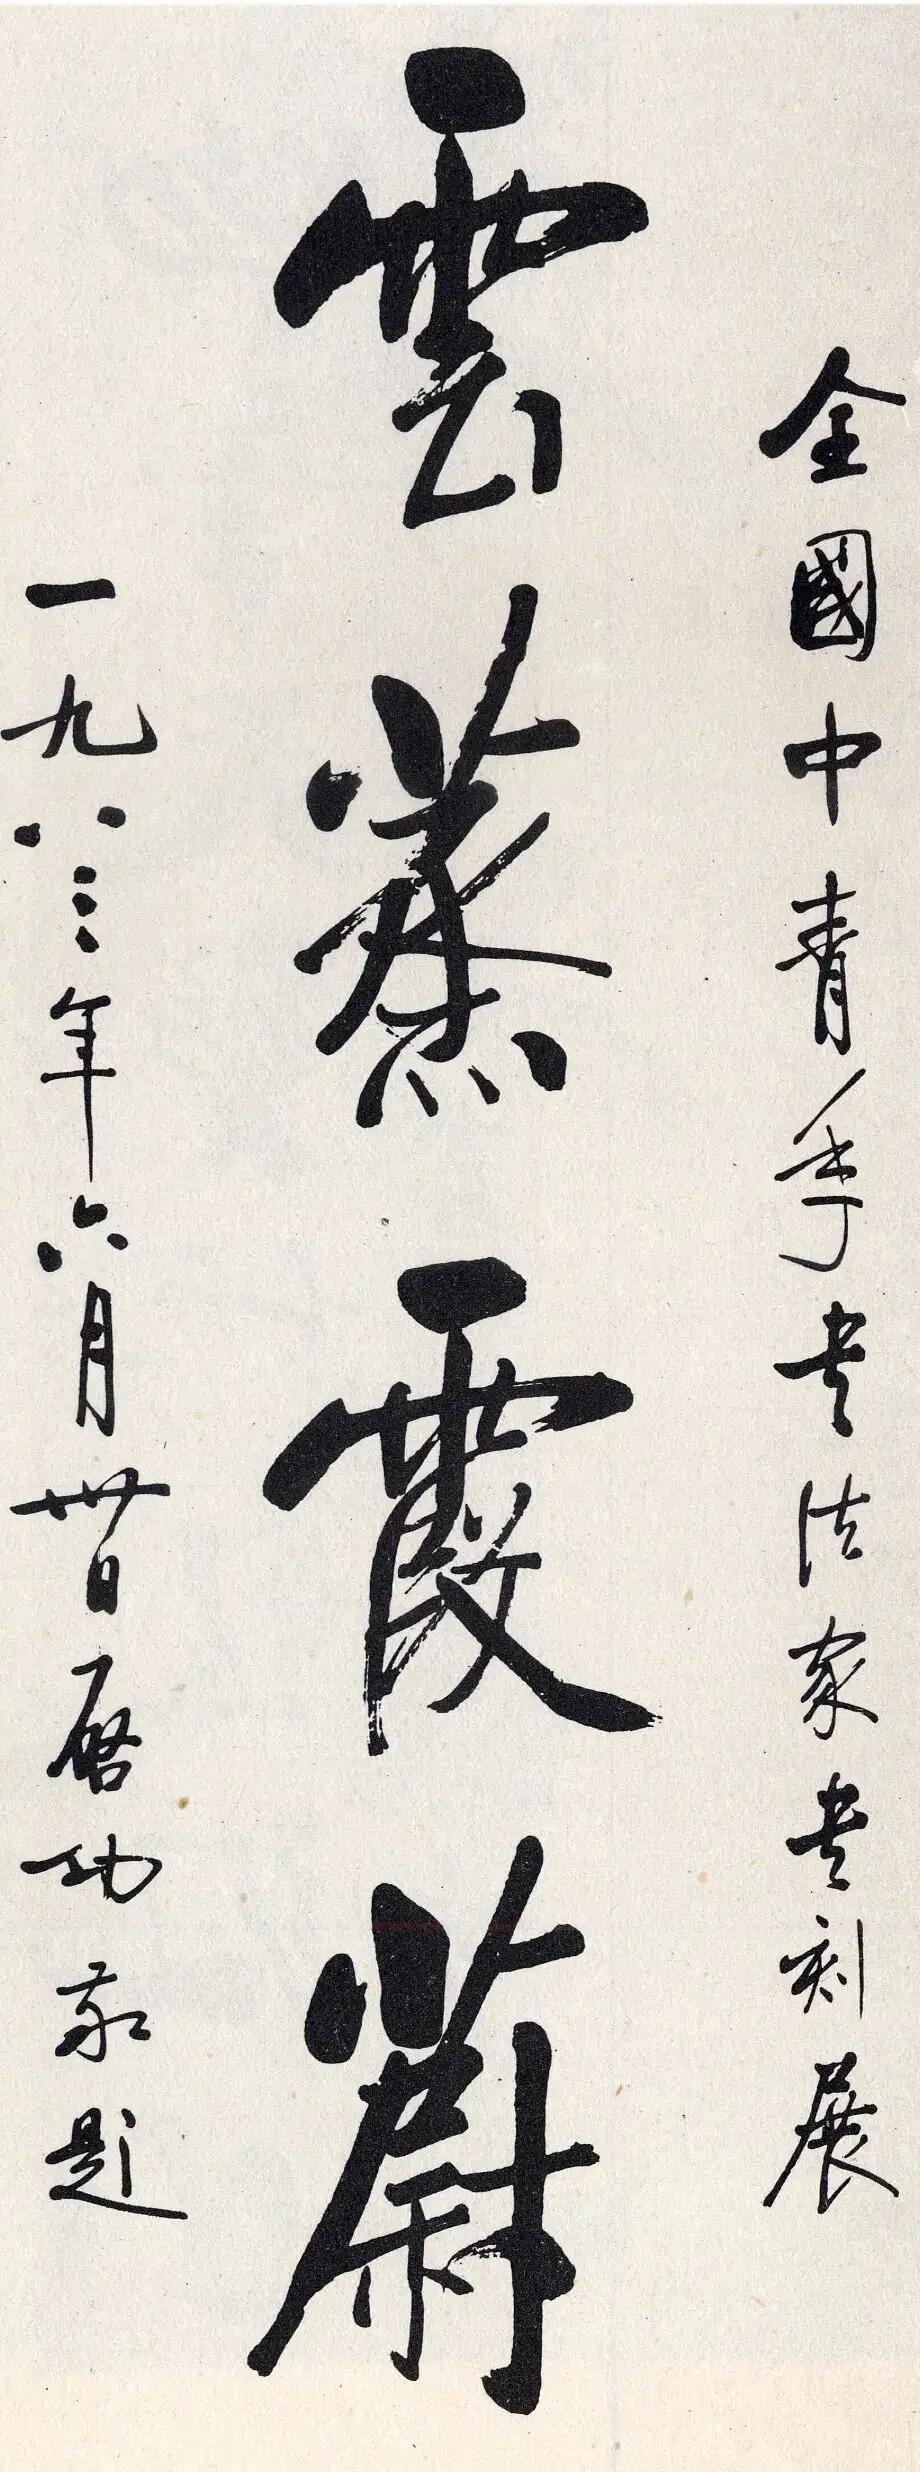 全國中青年书法家书刻展
雲蒸霞蔚
一九八三年六月卅日启功敬题